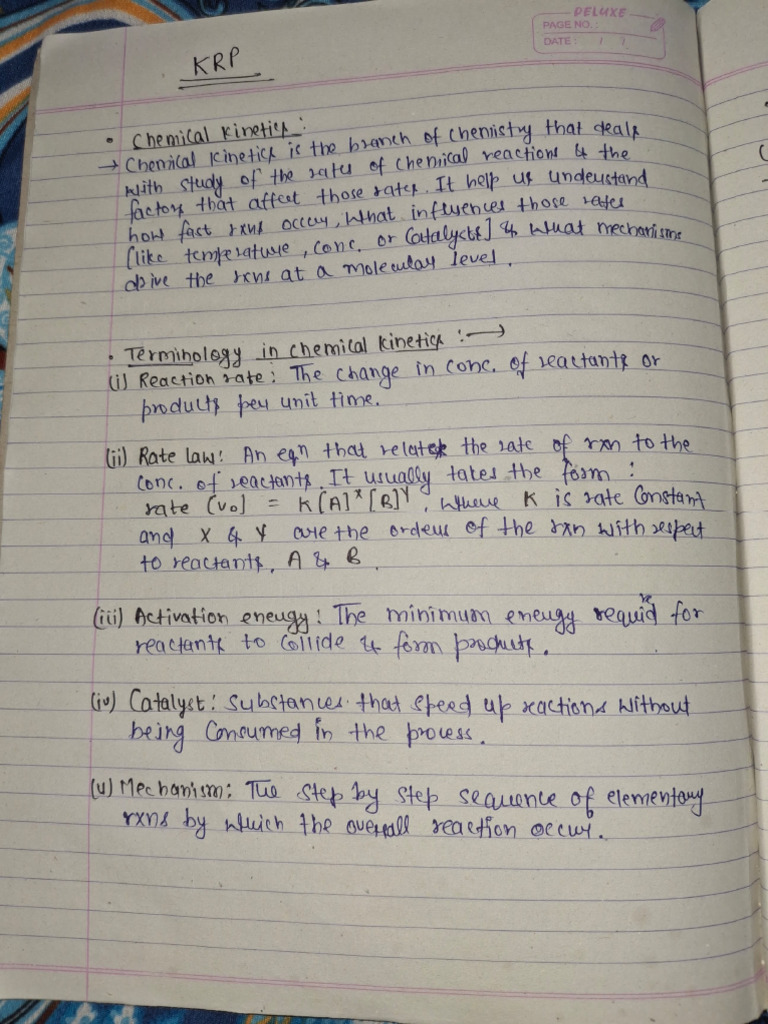 DELUXE
PAGE NO.:
DATE: / /
KRP
• Chemical Kinetics:
→ Chemical Kinetics is the branch of chemistry that deals
with study of the rates of chemical reactions & the
factors that affect those rates. It help us understand
how fast rxns occur, What influences those rates
[like temperature, conc. or Catalysts] & what mechanisms
drive the rxns at a molecular level.
• Terminology in chemical kinetics :→
(i) Reaction rate: The change in conc. of reactants or
products per unit time.
(ii) Rate law: An eqn that relates the rate of rxn to the
conc. of reactants. It usually takes the form :
rate (vo] = K[A]^X [B]^Y, where K is rate Constant
and X & Y are the orders of the rxn with respect
to reactants, A & B.
(iii) Activation energy: The minimum energy requird for
reactants to collide & form products.
(iv) Catalyst: Substances that speed up reactions without
being Consumed in the process.
(v) Mechanism: The step by step sequence of elementary
rxns by which the overall reaction occur.